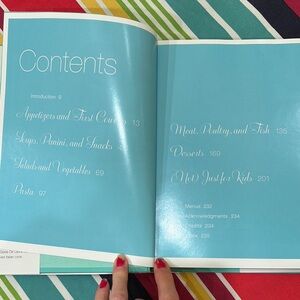 Contents
Introduction 9
Appetizers and First Courses 13
Soups, Panini, and Snacks
Salads and Vegetables 69
Pasta 97
Meat, Poultry, and Fish 135
Desserts 169
(Not) Just for Kids 201
Menus 232
Acknowledgments 234
Credits 234
Index 235